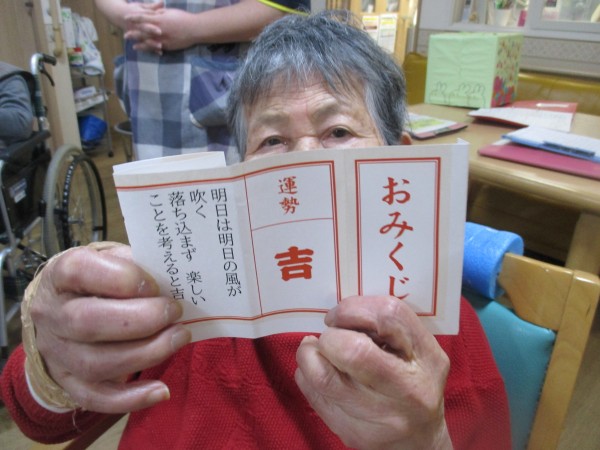 おみくじ
運勢
吉
明日は明日の風が
吹く
落ち込まず　楽しい
ことを考えると吉